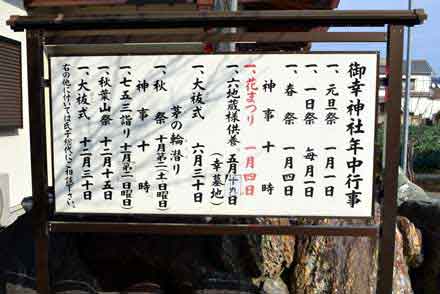 御幸神社年中行事
一、元旦祭 一月一日
一、一日祭 毎月一日
一、春祭 一月四日
神事十時
一、花まつり 一月四日
一、地蔵様供養 五月十九日
(幸墓地)
一、大祓式 六月三十日
茅の輪潜り
一、秋祭 十月第二土曜日
神事十時
一、七五三詣り 十一月第二日曜日
一、秋葉山祭 十二月十五日
一、大祓式 十二月三十日
右の他に付いては氏子総代にご相談下さい。